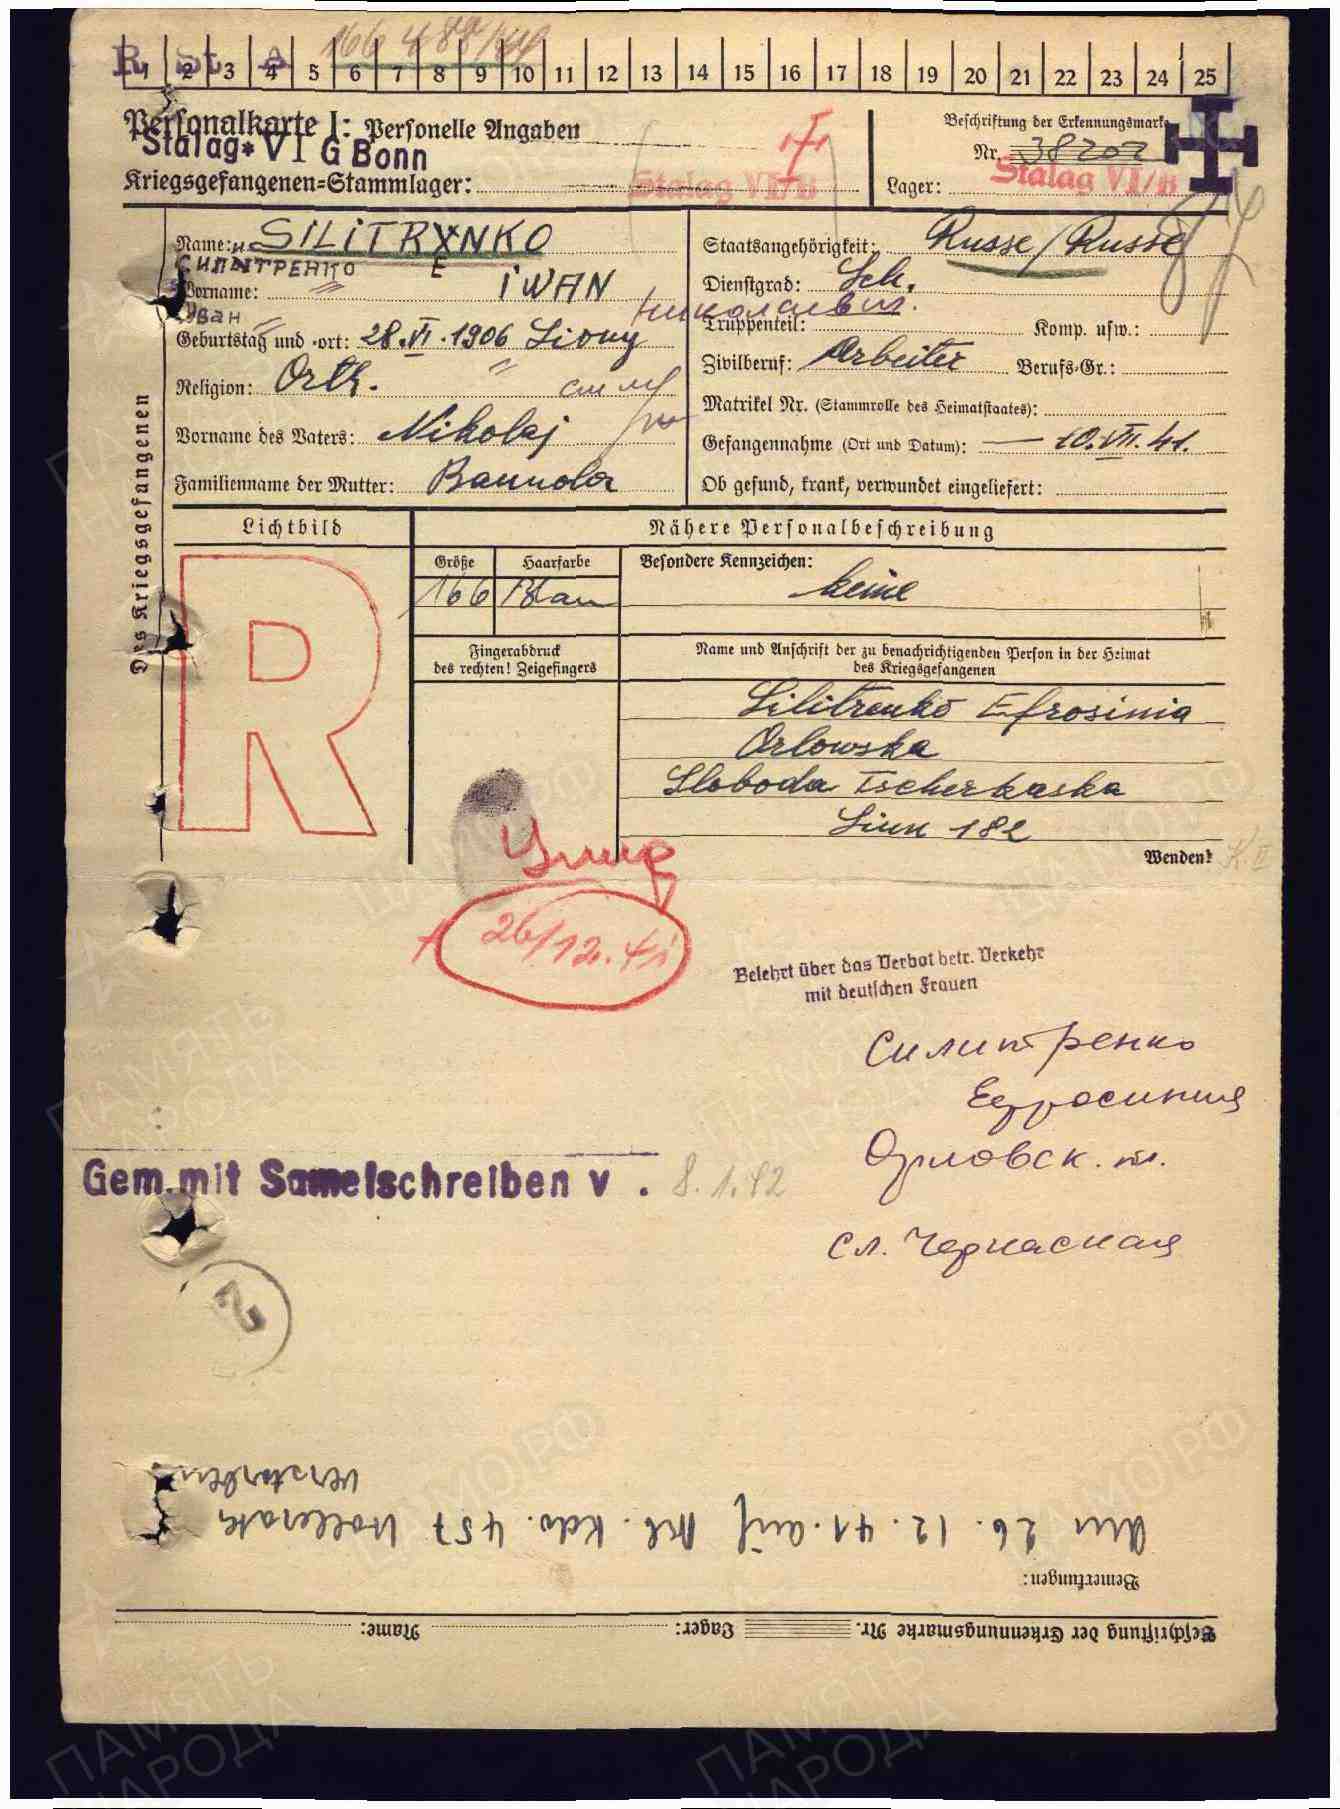 R St A 166 488/44
1 2 3 4 5 6 7 8 9 10 11 12 13 14 15 16 17 18 19 20 21 22 23 24 25
Personalkarte I: Personelle Angaben
Stalag VI G Bonn
Kriegsgefangenen=Stammlager: Stalag VI/B
Beschriftung der Erkennungsmarke
Nr. 38207
Lager: Stalag VI/B
Des Kriegsgefangenen
Name: SILITRYNKO
E
СИЛЫТРЕНКО
Vorname: IWAN
Иван Николаевич.
Geburtstag und -ort: 28.VI.1906
Religion: Orth.
Vorname des Vaters: Nikolaj
Familienname der Mutter:
Staatsangehörigkeit: Russe/Russe
Dienstgrad:
Truppenteil: Komp. usw.:
Zivilberuf: Arbeiter Berufs-Gr.:
Matrikel Nr. (Stammrolle des Heimatstaates):
Gefangennahme (Ort und Datum): — 10.VII.41.
Ob gesund, krank, verwundet eingeliefert:
Lichtbild
Nähere Personalbeschreibung
Größe Haarfarbe Besondere Kennzeichen:
166 keine
R
Fingerabdruck
des rechten! Zeigefingers
Name und Anschrift der zu benachrichtigenden Person in der Heimat
des Kriegsgefangenen
Silitrenko Efrosinia
Orlowska
Sloboda Tscherkaska
182
Wenden!
Умер
26/12.41
Belehrt über das Verbot betr. Verkehr
mit deutschen Frauen
Силитренко
Ефросиния
Орловск.
сл. Черкасская
Gem. mit Samelschreiben v. 8.1.42
2
verstorben
Am 26.12.41. auf Arb. Kdo. 457
Bemerkungen:
Beschriftung der Erkennungsmarke Nr. Lager: Name:
ПАМЯТЬ НАРОДА
ЦАМО.РФ